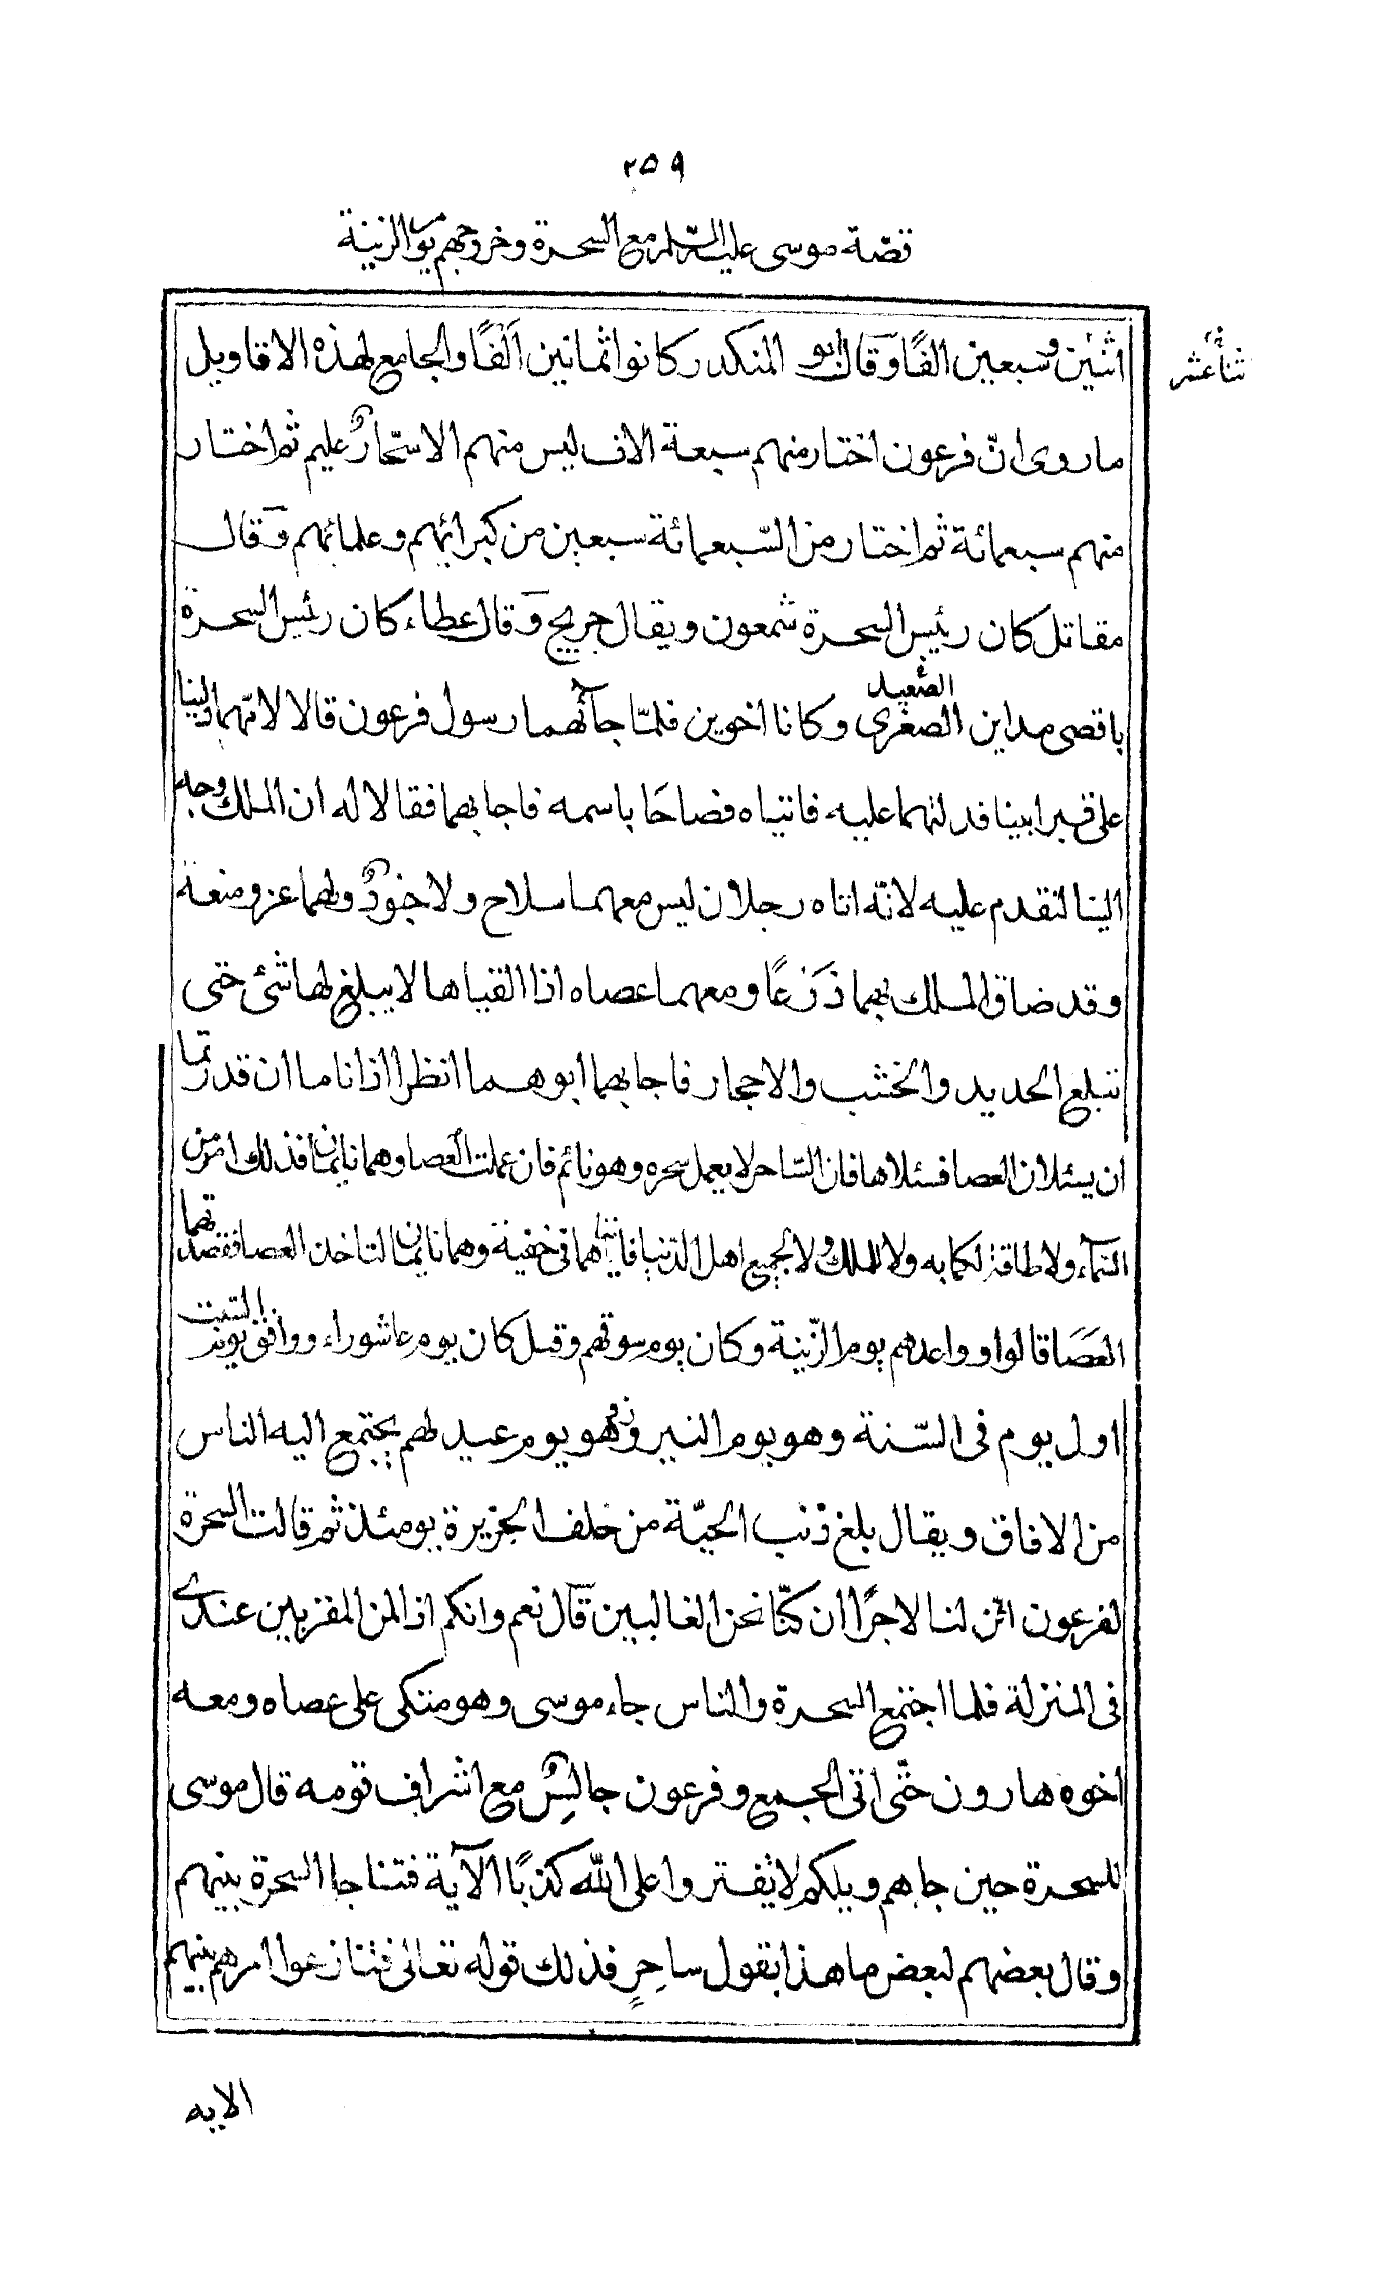 ٢٥٩
قصّة موسى عليه السّلم مع السحرة وخروجهم يوم الزينة
ثنا عشر
اثنين وسبعين الفًا وقال ابو المنكدر كانوا ثمانين اَلْفًا والجامع لهذه الاقاويل
ما روى انّ فرعون اختار منهم سبعة الاف ليس منهم الا سحّارٌ عليم ثم اختار
منهم سبعمائة ثم اختار من السّبعمائة سبعين من كبرائهم وعلمائهم وقال
مقاتل كان رئيس السحرة شمعون ويقال جريج وقال عطاء كان رئيس السحرة
باقصى مداين الصغرى الصّعيد وكانا اخوين فلمّا جآئهما رسول فرعون قالا لامّهما دلينا
على قبر ابينا فدلتهما عليه فاتياه فصاحَا باسمه فاجابهما فقالا له ان الملك وجه
الينا لنقدم عليه لانّه اتاه رجلان ليس معهما سلاح ولا جنودٌ ولهما عز ومنعة
وقد ضاق الملك بهما ذَرْعًا ومعهما عصاه اذا القياها لا يبلغ لها شئ حتى
تبلع الحديد والخشب والاحجار فاجابهما ابوهما انظرا اذا ناما ان قدرتما
ان يسئلان العصا فسئلاها فان السّاحر لا يعمل سحره وهو نائم فان عملت العصا وهما نايمان فذلك امر من
السّمآء ولا طاقة لكما به ولا للملك ولا لجميع اهل الدّنيا فاتيا هما فى خفية وهما نايمان لتاخذ العصا فقصدتهما
العَصَا قالوا وواعدهم يوم الزّينة وكان يوم سوقهم وقيل كان يوم عاشوراء ووافق يوم السّبت
اول يوم فى السّنة وهو يوم النيروز وهو يوم عيد لهم يجتمع اليه الناس
من الافاق ويقال بلغ ذنب الحيّة من خلف الجزيرة يومئذ ثم قالت السحرة
لفرعون ائن لنا لاجرًا ان كنّا نحن الغالبين قال نعم وانكم اذا لمن المقربين عندى
فى المنزلة فلما اجتمع السحرة والناس جاء موسى وهو متكى على عصاه ومعه
اخوه هارون حتّى اتى الجمع وفرعون جالسٌ مع اشراف قومه قال موسى
للسحرة حين جاهم ويلكم لا تفتروا على اللّه كذبًا الآية فتناجا السحرة بينهم
وقال بعضهم لبعض ما هذا بقول ساحرٍ فذلك قوله تعالى فتنازعوا امرهم بينهم
الايه